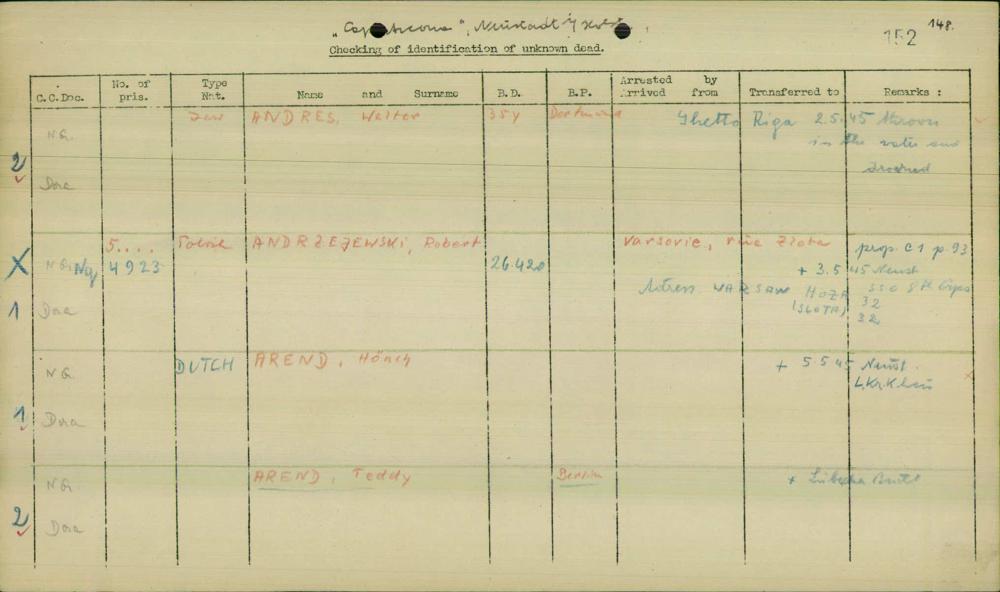 „Cap Arcona", Neustadt i/Holst.
152
148.
Checking of identification of unknown dead.
C.C.Doc. No. of pris. Type Nat. Name and Surname B.D. B.P. Arrested by Arrived from Transferred to Remarks :
Jew ANDRES, Walter 35y Dortmund Ghetto Riga 2.5.45 thrown
N.G. in the water and
2 drowned
Dora
5.... Polish ANDRZEJEWSKI, Robert Varsovie, rue Zlota prop. C 1 p. 93
X N.G. Ng 4923 26.4.20 + 3.5 45 Neust
Adress WARSAW HOZA
1 Dora (SLOTA) 32
32
N G. DUTCH AREND, Hönch + 5.5 45 Neust.
L.Kr.Khaus
1 Dora
AREND, Teddy Berlin +
N G.
2 Dora